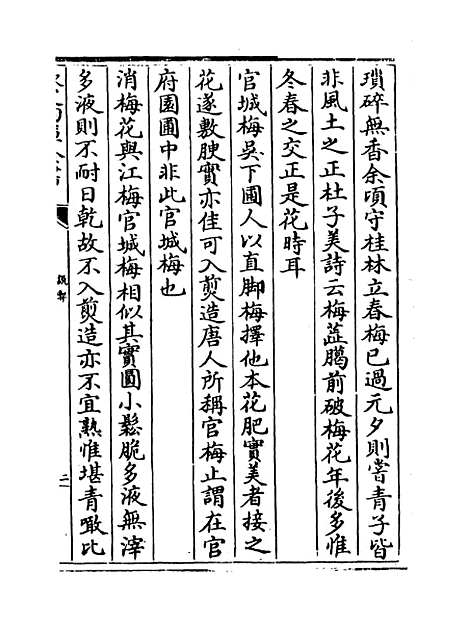 瑣碎無香余頃守桂林立春梅已過元夕則嘗青子皆
非風土之正杜子美詩云梅蕊臘前破梅花年後多惟
冬春之交正是花時耳
官城梅吳下圃人以直脚梅擇他本花肥實美者接之
花遂敷腴實亦佳可入煎造唐人所稱官梅止謂在官
府園圃中非此官城梅也
消梅花與江梅官城梅相似其實圓小鬆脆多液無滓
多液則不耐日乾故不入煎造亦不宜熟惟堪青噉比
二